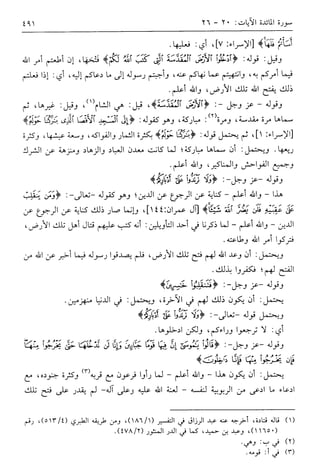 سورة المائدة الآيات: ٢٠ - ٢٦ ٤٩١
أَسَأْتُمْ فَلَهَا﴾ [الإسراء: ٧]، أي: فعليها.
وقيل: قوله: ﴿ادْخُلُوا الْأَرْضَ الْمُقَدَّسَةَ الَّتِي كَتَبَ اللَّهُ لَكُمْ﴾ فتحها، إن أطعتم أمر الله
فيما أمركم به، وانتهيتم عما نهاكم عنه، وأجبتم رسوله إلى ما دعاكم إليه، أي: إذا فعلتم
ذلك يفتح الله تلك الأرض، والله أعلم.
وقوله - عز وجل -: ﴿الْأَرْضَ الْمُقَدَّسَةَ﴾، قيل: هي الشام(١)، وقيل: غيرها، ثم
سماها مرة مقدسة، ومرة(٢): مباركة، وهو كقوله: ﴿إِلَى الْمَسْجِدِ الْأَقْصَا الَّذِي بَارَكْنَا حَوْلَهُ﴾
[الإسراء: ١]، ثم يحتمل قوله: ﴿بَارَكْنَا حَوْلَهُ﴾ بكثرة الثمار والفواكه، وسعة عيشها، وكثرة
ريعها. ويحتمل: أن سماها مباركة؛ لما كانت معدن العباد والزهاد ومنزهة عن الشرك
وجميع الفواحش والمناكير، والله أعلم.
وقوله - عز وجل -: ﴿وَلَا تَرْتَدُّوا عَلَى أَدْبَارِكُمْ﴾
هذا - والله أعلم - كناية عن الرجوع عن الدين؛ وهو كقوله -تعالى-: ﴿وَمَن يَنقَلِبْ
عَلَى عَقِبَيْهِ فَلَن يَضُرَّ اللَّهَ شَيْئًا﴾ [آل عمران: ١٤٤]، وإنما صار ذلك كناية عن الرجوع عن
الدين - والله أعلم - لما ذكرنا في أحد التأويلين: أنه كتب عليهم قتال أهل تلك الأرض،
فتركوا أمر الله وطاعته.
ويحتمل: أن وعد الله لهم فتح تلك الأرض، فلم يصدقوا رسوله فيما أخبر عن الله من
الفتح لهم؛ فكفروا بذلك.
وقوله - عز وجل -: ﴿فَتَنقَلِبُوا خَاسِرِينَ﴾
يحتمل: أن يكون ذلك لهم في الآخرة، ويحتمل: في الدنيا منهزمين.
ويحتمل قوله -تعالى-: ﴿وَلَا تَرْتَدُّوا عَلَى أَدْبَارِكُمْ﴾
أي: لا ترجعوا وراءكم، ولكن ادخلوها.
وقوله - عز وجل -: ﴿قَالُوا يَا مُوسَى إِنَّ فِيهَا قَوْمًا جَبَّارِينَ وَإِنَّا لَن نَّدْخُلَهَا حَتَّى يَخْرُجُوا مِنْهَا
فَإِن يَخْرُجُوا مِنْهَا فَإِنَّا دَاخِلُونَ﴾
يحتمل: أن يكون هذا - والله أعلم - لما رأوا فرعون مع قربه(٣) وكثرة جنوده، مع
ادعاء ما ادعى من الربوبية لنفسه - لعنة الله عليه وعلى آله- لم يقدر على فتح تلك
(١) قاله قتادة، أخرجه عنه عبد الرزاق في التفسير (١/١٨٦)، ومن طريقه الطبري (٤/٥١٣)، رقم
(١١٦٥٠)، وعبد بن حميد، كما في الدر المنثور (٢/٤٧٨).
(٢) في ب: وهي.
(٣) في أ: قومه.